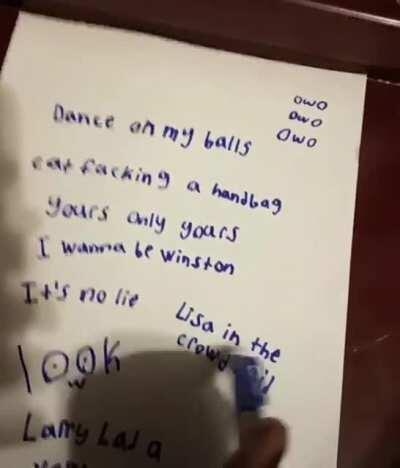 owo
owo
owo
Dance on my balls
cat facking a handbag
yours only yours
I wanna be winston
It's no lie
Lisa in the
crowd
look
w
Larry Lala